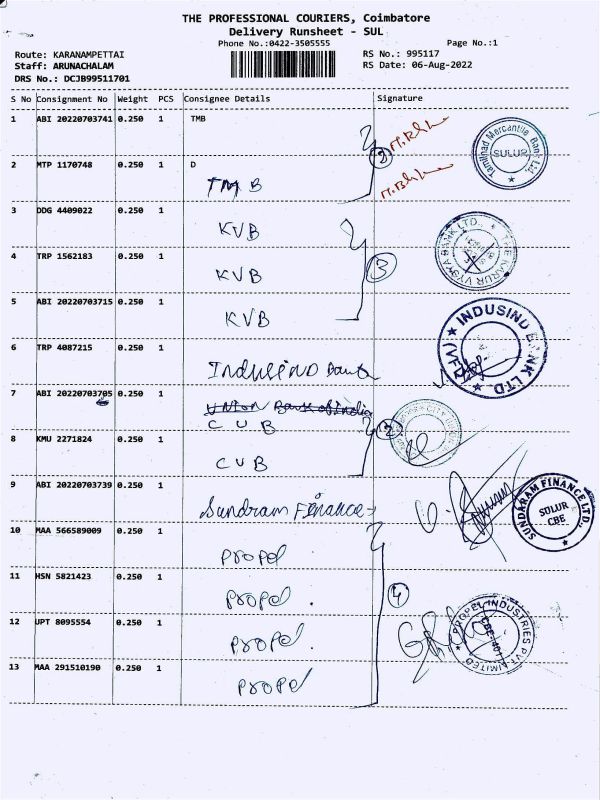 THE PROFESSIONAL COURIERS, Coimbatore
Delivery Runsheet - SUL
Phone No.:0422-3505555 Page No.:1
Route: KARANAMPETTAI RS No.: 995117
Staff: ARUNACHALAM RS Date: 06-Aug-2022
DRS No.: DCJB99511701
S No Consignment No Weight PCS Consignee Details Signature
1 ABI 20220703741 0.250 1 TMB
Tamilnad Mercantile Bank Ltd. SULUR
2 MTP 1170748 0.250 1 D
TMB
2
3 DDG 4409022 0.250 1
KVB
THE KARUR VYSYA BANK LTD.,
4 TRP 1562183 0.250 1
KVB
3
5 ABI 20220703715 0.250 1
KVB
INDUSIND BANK LTD
6 TRP 4087215 0.250 1
Indusind Bank
7 ABI 20220703705 0.250 1
Union Bank of India
CUB
2
8 KMU 2271824 0.250 1
CUB
9 ABI 20220703739 0.250 1
Sundram Finance
SUNDARAM FINANCE LTD., SULUR CBE
10 MAA 566589009 0.250 1
Propel
11 HSN 5821423 0.250 1
Propel.
4
12 UPT 8095554 0.250 1
Propel.
PROPEL INDUSTRIES PVT LIMITED CBE-401
13 MAA 291510190 0.250 1
Propel